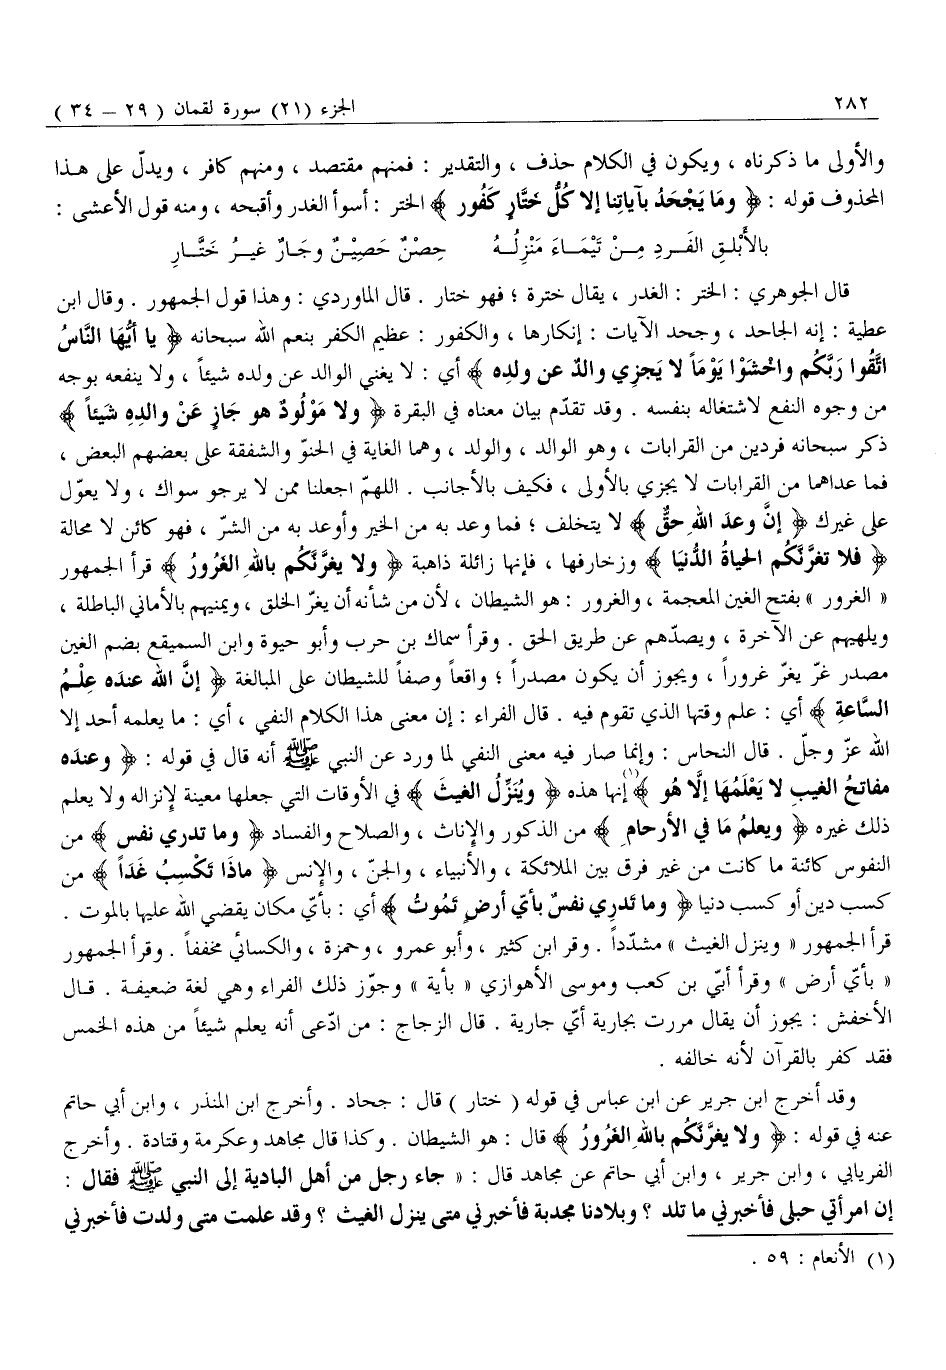 ٢٨٢
الجزء (٢١) سورة لقمان ( ٢٩ – ٣٤ )
والأولى ما ذكرناه ، ويكون في الكلام حذف ، والتقدير : فمنهم مقتصد ، ومنهم كافر ، ويدلّ على هذا
المحذوف قوله : ﴿ وما يَجْحَدُ بآياتِنا إلا كُلُّ خَتَّارٍ كَفُور ﴾ الختر : أسوأ الغدر وأقبحه ، ومنه قول الأعشى :
بالأَبْلقِ الفَردِ مِنْ تَيْمَاءَ مَنْزِلُهُ حِصْنٌ حَصِيْنٌ وجَارٌ غيرُ خَتَّارِ
قال الجوهري : الختر : الغدر ، يقال خترة ؛ فهو ختار . قال الماوردي : وهذا قول الجمهور . وقال ابن
عطية : إنه الجاحد ، وجحد الآيات : إنكارها ، والكفور : عظيم الكفر بنعم الله سبحانه ﴿ يا أيُّها النَّاسُ
اتَّقُوا رَبَّكُم واخْشَوْا يَوْمَاً لا يَجزِي والدٌ عن ولدِه ﴾ أي : لا يغني الوالد عن ولده شيئاً ، ولا ينفعه بوجه
من وجوه النفع لاشتغاله بنفسه . وقد تقدّم بيان معناه في البقرة ﴿ ولا مَوْلُودٌ هو جَازٍ عَنْ والدِهِ شَيئاً ﴾
ذكر سبحانه فردين من القرابات ، وهو الوالد ، والولد ، وهما الغاية في الحنوّ والشفقة على بعضهم البعض ،
فما عداهما من القرابات لا يجزي بالأولى ، فكيف بالأجانب . اللهمّ اجعلنا ممن لا يرجو سواك ، ولا يعوّل
على غيرك ﴿ إنَّ وعدَ اللهِ حقٌّ ﴾ لا يتخلف ؛ فما وعد به من الخير وأوعد به من الشرّ ، فهو كائن لا محالة
﴿ فلا تغرَّنَّكُم الحياةُ الدُّنيَا ﴾ وزخارفها ، فإنها زائلة ذاهبة ﴿ ولا يغرَّنَّكُم باللهِ الغَرُورُ ﴾ قرأ الجمهور
« الغرور » بفتح الغين المعجمة ، والغرور : هو الشيطان ، لأن من شأنه أن يغرّ الخلق ، ويمنيهم بالأماني الباطلة ،
ويلهيهم عن الآخرة ، ويصدّهم عن طريق الحق . وقرأ سماك بن حرب وأبو حيوة وابن السميقع بضم الغين
مصدر غرّ يغرّ غروراً ، ويجوز أن يكون مصدراً ؛ واقعاً وصفاً للشيطان على المبالغة ﴿ إنَّ الله عندَه عِلْمُ
السَّاعةِ ﴾ أي : علم وقتها الذي تقوم فيه . قال الفراء : إن معنى هذا الكلام النفي ، أي : ما يعلمه أحد إلا
الله عزّ وجلّ . قال النحاس : وإنما صار فيه معنى النفي لما ورد عن النبي ﷺ أنه قال في قوله : ﴿ وعندَه
مفاتحُ الغيبِ لا يَعْلَمُهَا إلَّا هُو ﴾(١) إنها هذه ﴿ ويُنَزِّلُ الغيثَ ﴾ في الأوقات التي جعلها معينة لإنزاله ولا يعلم
ذلك غيره ﴿ ويعلمُ مَا في الأرحامِ ﴾ من الذكور والإناث ، والصلاح والفساد ﴿ وما تدري نفس ﴾ من
النفوس كائنة ما كانت من غير فرق بين الملائكة ، والأنبياء ، والجنّ ، والإنس ﴿ ماذَا تَكْسِبُ غَدَاً ﴾ من
كسب دين أو كسب دنيا ﴿ وما تَدرِي نفسٌ بأيّ أرضٍ تَمُوتُ ﴾ أي : بأيّ مكان يقضي الله عليها بالموت .
قرأ الجمهور « وينزل الغيث » مشدّداً . وقر ابن كثير ، وأبو عمرو ، وحمزة ، والكسائي مخففاً . وقرأ الجمهور
« بأيّ أرض » وقرأ أبيّ بن كعب وموسى الأهوازي « بأية » وجوّز ذلك الفراء وهي لغة ضعيفة . قال
الأخفش : يجوز أن يقال مررت بجارية أيّ جارية . قال الزجاج : من ادّعى أنه يعلم شيئاً من هذه الخمس
فقد كفر بالقرآن لأنه خالفه .
وقد أخرج ابن جرير عن ابن عباس في قوله ( ختار ) قال : جحاد . وأخرج ابن المنذر ، وابن أبي حاتم
عنه في قوله : ﴿ ولا يغرَّنَّكُم باللهِ الغَرُورُ ﴾ قال : هو الشيطان . وكذا قال مجاهد وعكرمة وقتادة . وأخرج
الفريابي ، وابن جرير ، وابن أبي حاتم عن مجاهد قال : « جاء رجل من أهل البادية إلى النبي ﷺ فقال :
إن امرأتي حبلى فأخبرني ما تلد ؟ وبلادنا مجدبة فأخبرني متى ينزل الغيث ؟ وقد علمت متى ولدت فأخبرني
(١) الأنعام : ٥٩ .